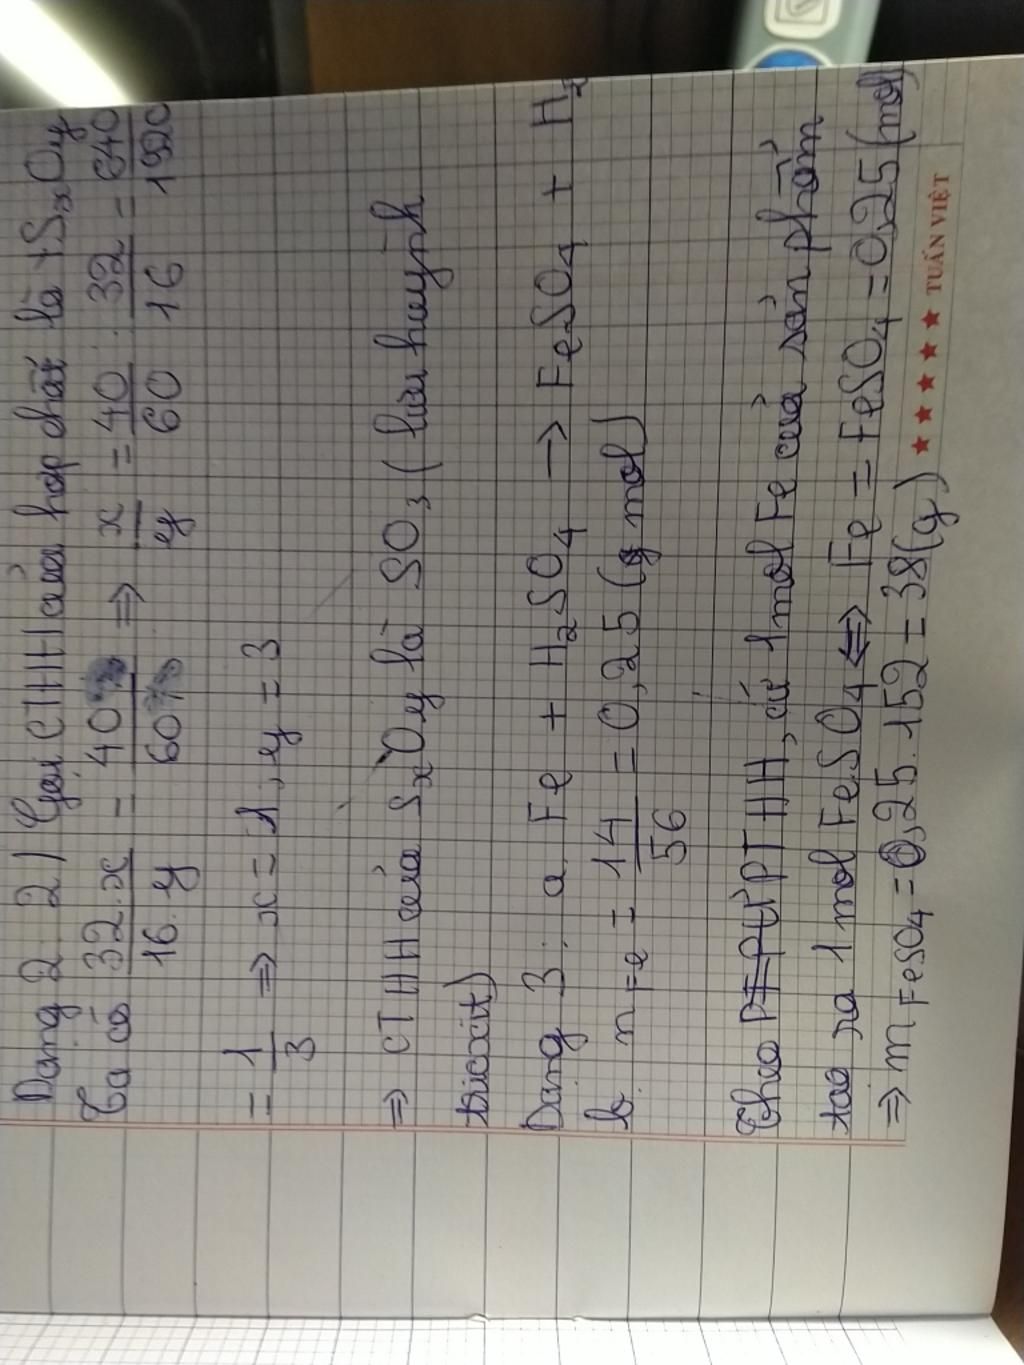 Dạng 2 2) Gọi CTHH của hợp chất là : SxOy
Ta có 32.x/16.y = 40%/60% => x/y = 40/60 : 32/16 = 640/1920
= 1/3 => x = 1, y = 3
=> CTHH của SxOy là SO3 (lưu huỳnh
trioxit)
Dạng 3: a, Fe + H2SO4 → FeSO4 + H2
b. nFe = 14/56 = 0,25 (g mol)
Theo PTHH, cứ 1 mol Fe của sản phẩm
tạo ra 1 mol FeSO4 <=> Fe = FeSO4 = 0,25 (mol)
=> mFeSO4 = 0,25.152 = 38 (g)
★★★★★ TUẤN VIỆT